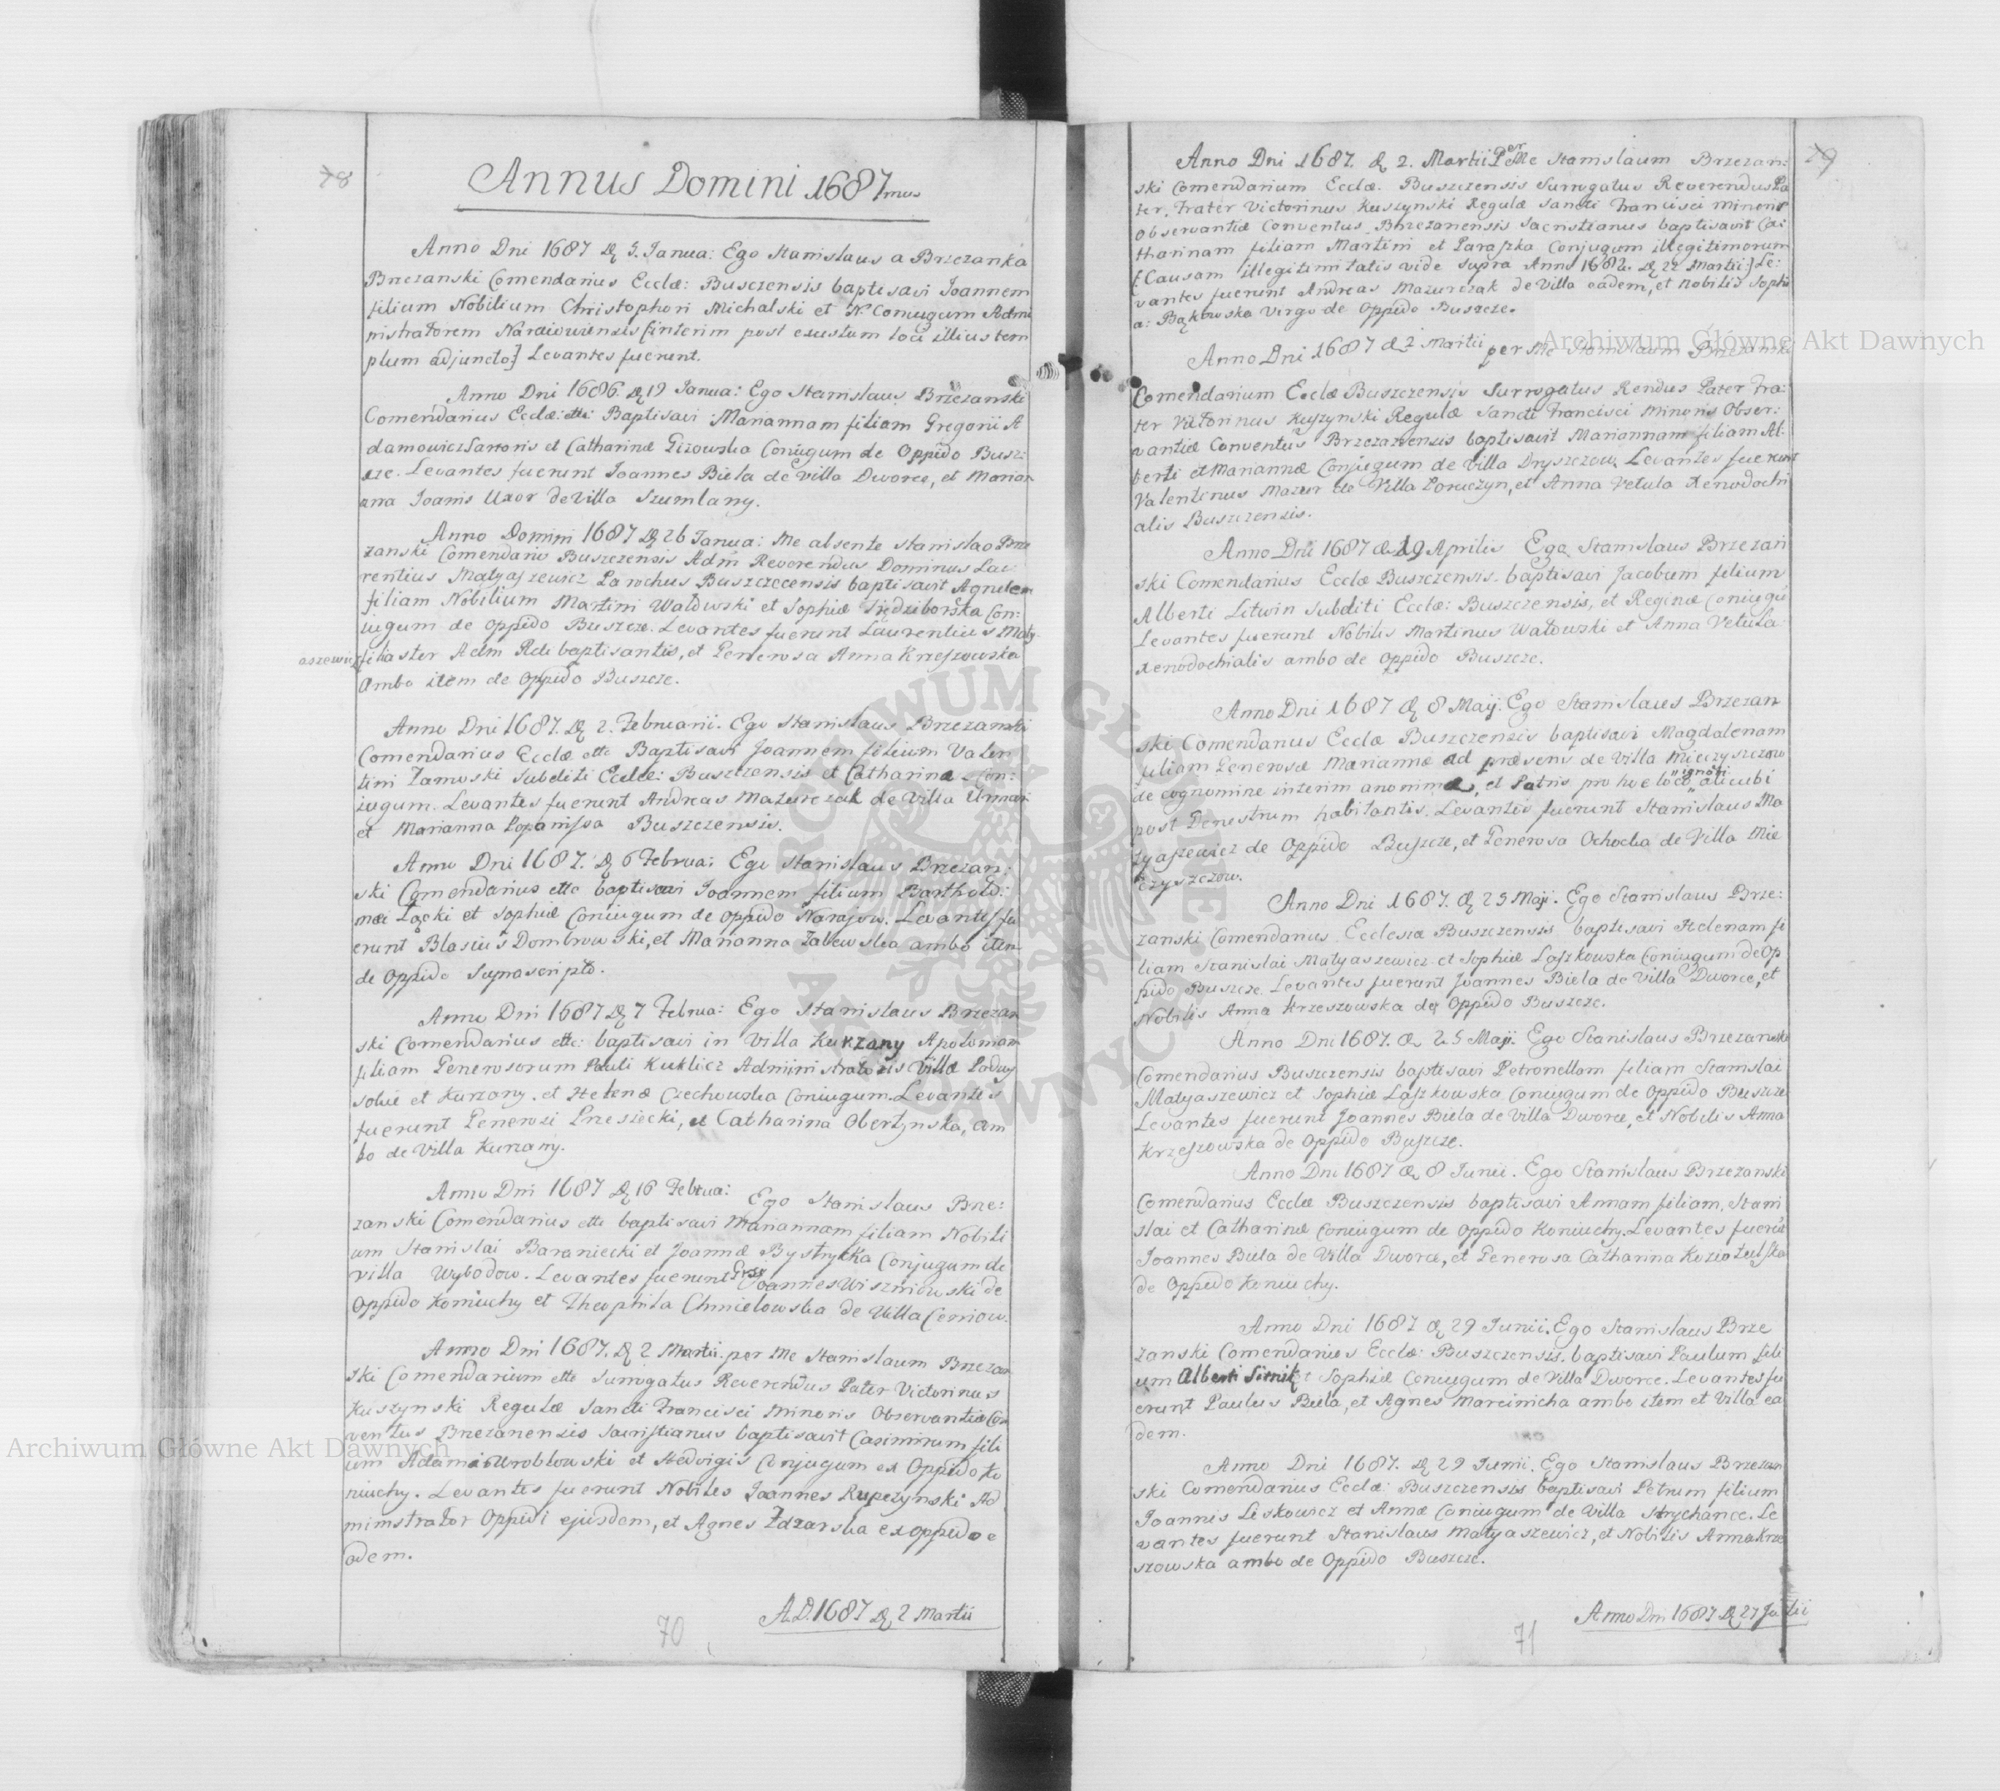 78
Annus Domini 1687mus
Anno Dni 1687 D 5. Janua: Ego Stanislaus a Brzezanka
Brzezanski Comendarius Ecclæ: Busczensis baptisavi Joannem
filium Nobilium Christophori Michalski et N. Coniugum Admi
nistratorem Naraioviensis [interim post exustum loci illius tem
plum adjuncto] Levantes fuerunt.
Anno Dni 1686. D 19 Janua: Ego Stanislaus Brzezanski
Comendarius Ecclæ: ette: Baptisavi Mariannam filiam Gregorii A
damowicz Sartoris et Catharinæ Gizowska Coniugum de Oppido Busz
cze. Levantes fuerunt Joannes Biela de Villa Dworce, et Marian
na Joanis Uxor de Villa Szumlany.
Anno Domini 1687 D 26 Janua: Me absente Stanislao Brze
zanski Comendario Buszczensis Adm Reverendus Dominus Lau
rentius Matyaszewicz Parochus Buszczecensis baptisavit Agnetem
filiam Nobilium Martini Watowski et Sophiæ Siędziborska Con:
iugum de Oppido Buszcze. Levantes fuerunt Laurentius Maty
aszewicz filiaster Adm Rdi baptisantis, et Generosa Anna Krzeszowska
Ambo item de Oppido Buszcze.
Anno Dni 1687. D 2. Februarii. Ego Stanislaus Brzezanski
Comendarius Ecclæ ette Baptisavi Joannem filium Valen
tini Zamoski Subditi Ecclæ: Buszczensis et Catharinæ Con:
iugum. Levantes fuerunt Andreas Mazurczak de Villa
et Marianna Popanissa Buszczensis.
Anno Dni 1687. D 6 Februa: Ego Stanislaus Brzezan:
ski Comendarius ette baptisavi Joannem filium Barthold:
mæi Łącki et Sophiæ Coniugum de Oppido Narajow. Levantes fu
erunt Blasius Dombrowski, et Marianna Zalewska ambo item
de Oppido Suprascripto.
Anno Dni 1687 D 7 Februa: Ego Stanislaus Brzezan
ski Comendarius ette: baptisavi in Villa Kurzany Apoloniam
filiam Generosorum Pauli Kuklicz Administratoris Villæ Podwy
sokie et Kurzany. et Helenæ Czechowska Coniugum. Levantes
fuerunt Generosi Przesiecki, et Catharina Obertynska, am
bo de Villa Kurzany.
Anno Dni 1687 D 16 Februa: Ego Stanislaus Brze:
zanski Comendarius ette baptisavi Mariannam filiam Nobili
um Stanislai Baraniecki et Joannæ Bystrycka Conjugum de
villa Wybodow. Levantes fuerunt Joannes Wiszniowski de
Oppido Koniuchy et Theophila Chmielowska de Villa Ceniow.
Anno Dni 1687. D 2 Martii. per Me Stanislaum Brzezan
ski Comendarium ette Surrogatus Reverendus Pater Victorinus
Kuszynski Regulæ Sancti Francisci Minoris Observantiæ Co
ventus Brzezanensis Sacristianus baptisavit Casimirum fili
um Adami Wroblowski et Hedvigis Conjugum ex Oppido Ko
niuchy. Levantes fuerunt Nobiles Joannes Rupczynski Ad
ministrator Oppidi ejusdem, et Agnes Zdzarska ex Oppido e
odem.
A.D. 1687 D 2 Martii
70
79
Anno Dni 1687. D 2. Martii Per Me Stanislaum Brzezan:
ski Comendarium Ecclæ. Buszczensis Surrogatus Reverendus Pa
ter, Frater Victorinus Kuszynski Regulæ Sancti Francisci Minoris
Observantiæ Conventus Brzezanensis Sacristianus baptisavit Ca
tharinam filiam Martini et Paraszka Conjugum illegitimorum
[Causam illegitimitatis vide supra Anno 1682. D 22 Martii] Le:
vantes fuerunt Andreas Mazurczak de Villa eadem, et Nobilis Sophi
a: Bąkowska Virgo de Oppido Buszcze.
Anno Dni 1687 D 2 Martii per Me Stanislaum Brzezanski
Comendarium Ecclæ Buszczensis Surrogatus Rendus Pater Fra:
ter Victorinus Kuszynski Regulæ Sancti Francisci Minoris Obser:
vantiæ Conventus Brzezanensis baptisavit Mariannam filiam Al:
berti et Mariannæ Conjugum de Villa Dryszczow. Levantes fuerunt
Valentinus Mazur de Villa Poruczyn, et Anna Vetula Xenodochi
alis Buszczensis.
Anno Dni 1687 D 19 Aprilis Ego Stanislaus Brzezan
ski Comendarius Ecclæ Buszczensis. baptisavi Jacobum filium
Alberti Litwin Subditi Ecclæ: Buszczensis, et Reginæ Coniugu
Levantes fuerunt Nobilis Martinus Watowski et Anna Vetula
Xenodochialis ambo de Oppido Buszcze.
Anno Dni 1687 D 8 Maij. Ego Stanislaus Brzezan
ski Comendarius Ecclæ Buszczensis baptisavi Magdalenam
filiam Generosæ Mariannæ ad præsens de Villa Mieczyszczow
de cognomine interim anonimæ, et Patris pro hoc loco ignoti alicubi
post Denestrum habitantis. Levantes fuerunt Stanislaus Ma
tyaszewicz de Oppido Buszcze, et Generosa Ochocka de Villa Mie
czyszczow.
Anno Dni 1687. D 25 Maji. Ego Stanislaus Brze:
zanski Comendarius Ecclesiæ Buszczensis baptisavi Helenam fi
liam Stanislai Matyaszewicz et Sophiæ Laszkowska Coniugum de Op
pido Buszcze. Levantes fuerunt Joannes Biela de Villa Dworce, et
Nobilis Anna Krzeszowska de Oppido Buszcze.
Anno Dni 1687. D 25 Maji. Ego Stanislaus Brzezanski
Comendarius Buszczensis baptisavi Petronellam filiam Stanislai
Matyaszewicz et Sophiæ Laszkowska Coniugum de Oppido Buszcze
Levantes fuerunt Joannes Biela de Villa Dworce, et Nobilis Anna
Krzeszowska de Oppido Buszcze.
Anno Dni 1687 D 8 Junii. Ego Stanislaus Brzezanski
Comendarius Ecclæ Buszczensis baptisavi Annam filiam, Stani
slai et Catharinæ Coniugum de Oppido Koniuchy. Levantes fuerut
Joannes Biela de Villa Dworce, et Generosa Catharina Koziotulska
de Oppido Koniuchy.
Anno Dni 1687 D 29 Junii. Ego Stanislaus Brze
zanski Comendarius Ecclæ: Buszczensis. baptisavi Paulum fili
um Alberti Sitnik et Sophiæ Coniugum de Villa Dworce. Levantes fu
erunt Paulus Biela, et Agnes Marcinicha ambo item et Villa ea
dem.
Anno Dni 1687. D 29 Junii. Ego Stanislaus Brzezan
ski Comendarius Ecclæ: Buszczensis baptisavi Petrum filium
Joannis Liskowicz et Annæ Coniugum de Villa Strychance. Le
vantes fuerunt Stanislaus Matyaszewicz, et Nobilis Anna Krze
szowska ambo de Oppido Buszcze.
Anno Dni 1687 D 27 Julii
71
Archiwum Główne Akt Dawnych
Archiwum Główne Akt Dawnych
ARCHIWUM GŁÓWNE AKT DAWNYCH